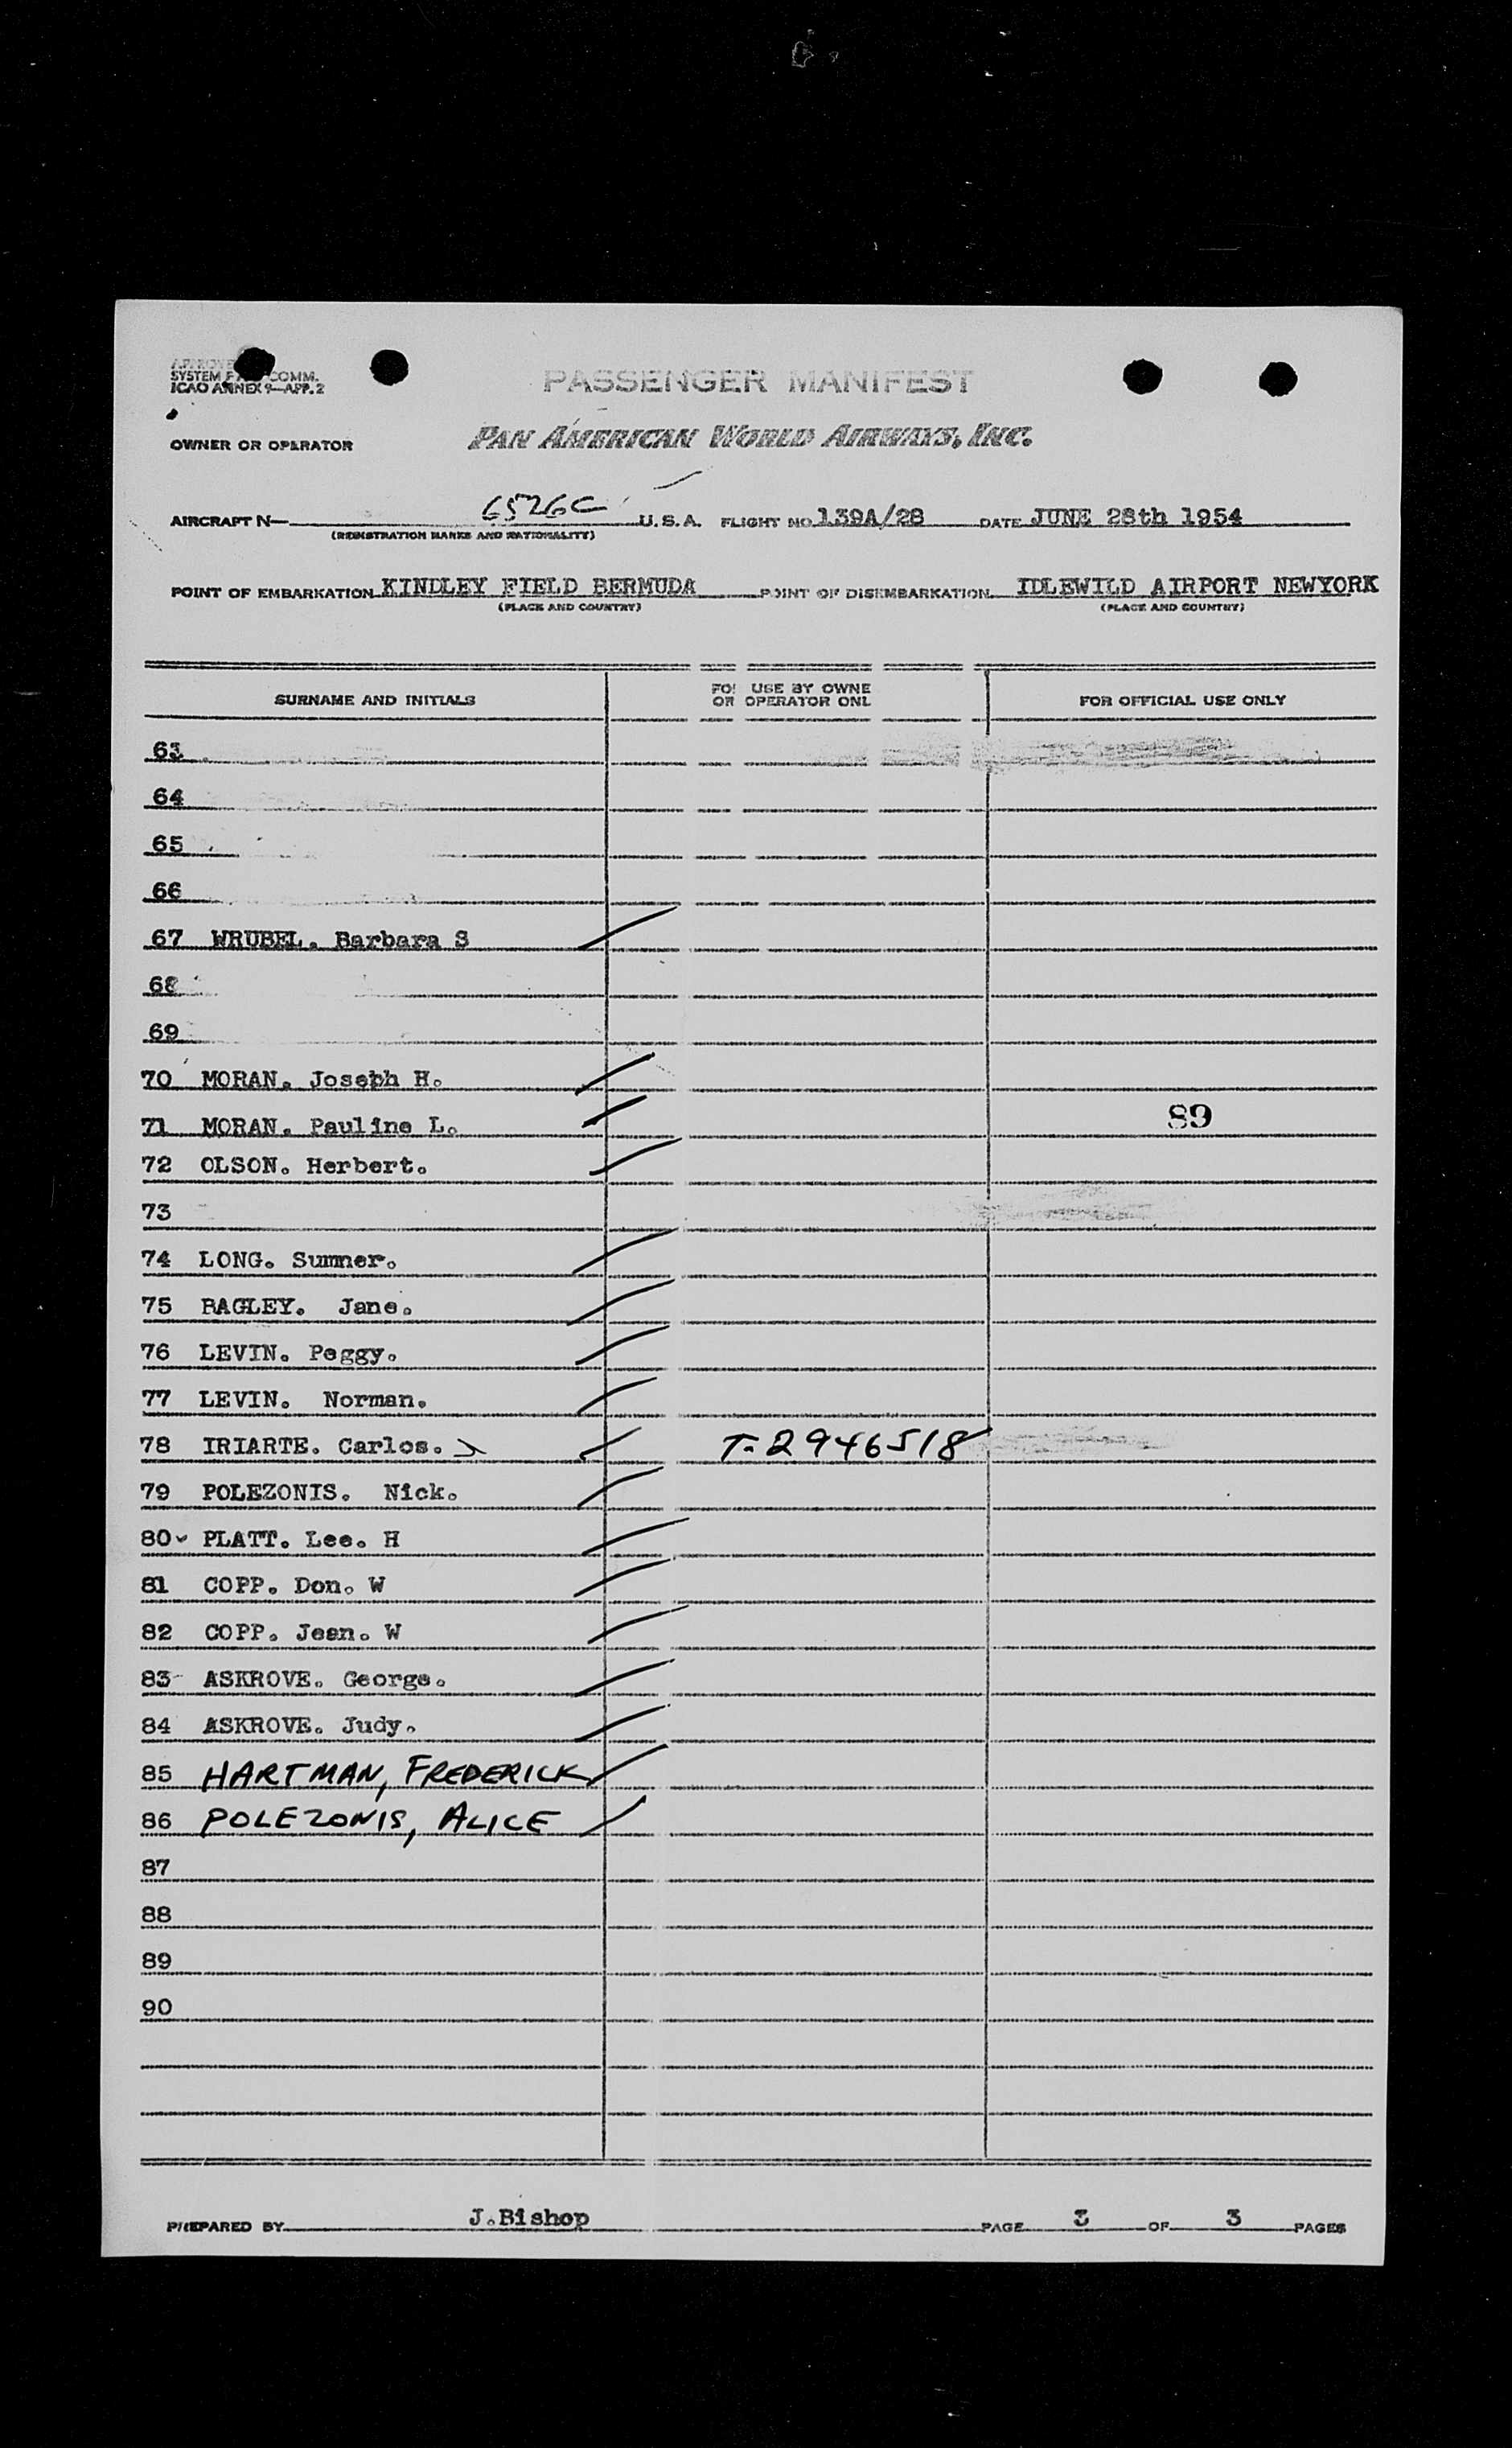 SYSTEM COMM.
ICAO ANNEX 9—APP. 2
PASSENGER MANIFEST
OWNER OR OPERATOR PAN AMERICAN WORLD AIRWAYS, INC.
AIRCRAFT N— 6526C U.S.A. FLIGHT NO. 139A/28 DATE JUNE 28th 1954
(REGISTRATION MARKS AND NATIONALITY)
POINT OF EMBARKATION KINDLEY FIELD BERMUDA POINT OF DISEMBARKATION IDLEWILD AIRPORT NEWYORK
(PLACE AND COUNTRY) (PLACE AND COUNTRY)
SURNAME AND INITIALS FO USE BY OWNE OR OPERATOR ONL FOR OFFICIAL USE ONLY
63
64
65
66
67 WRUBEL. Barbara S
68
69
70 MORAN. Joseph H.
71 MORAN. Pauline L. 89
72 OLSON. Herbert.
73
74 LONG. Sumner.
75 BAGLEY. Jane.
76 LEVIN. Peggy.
77 LEVIN. Norman.
78 IRIARTE. Carlos. T-2946518
79 POLEZONIS. Nick.
80 PLATT. Lee. H
81 COPP. Don. W
82 COPP. Jean. W
83 ASKROVE. George.
84 ASKROVE. Judy.
85 HARTMAN, FREDERICK
86 POLEZONIS, ALICE
87
88
89
90
PREPARED BY J.Bishop PAGE 3 OF 3 PAGES